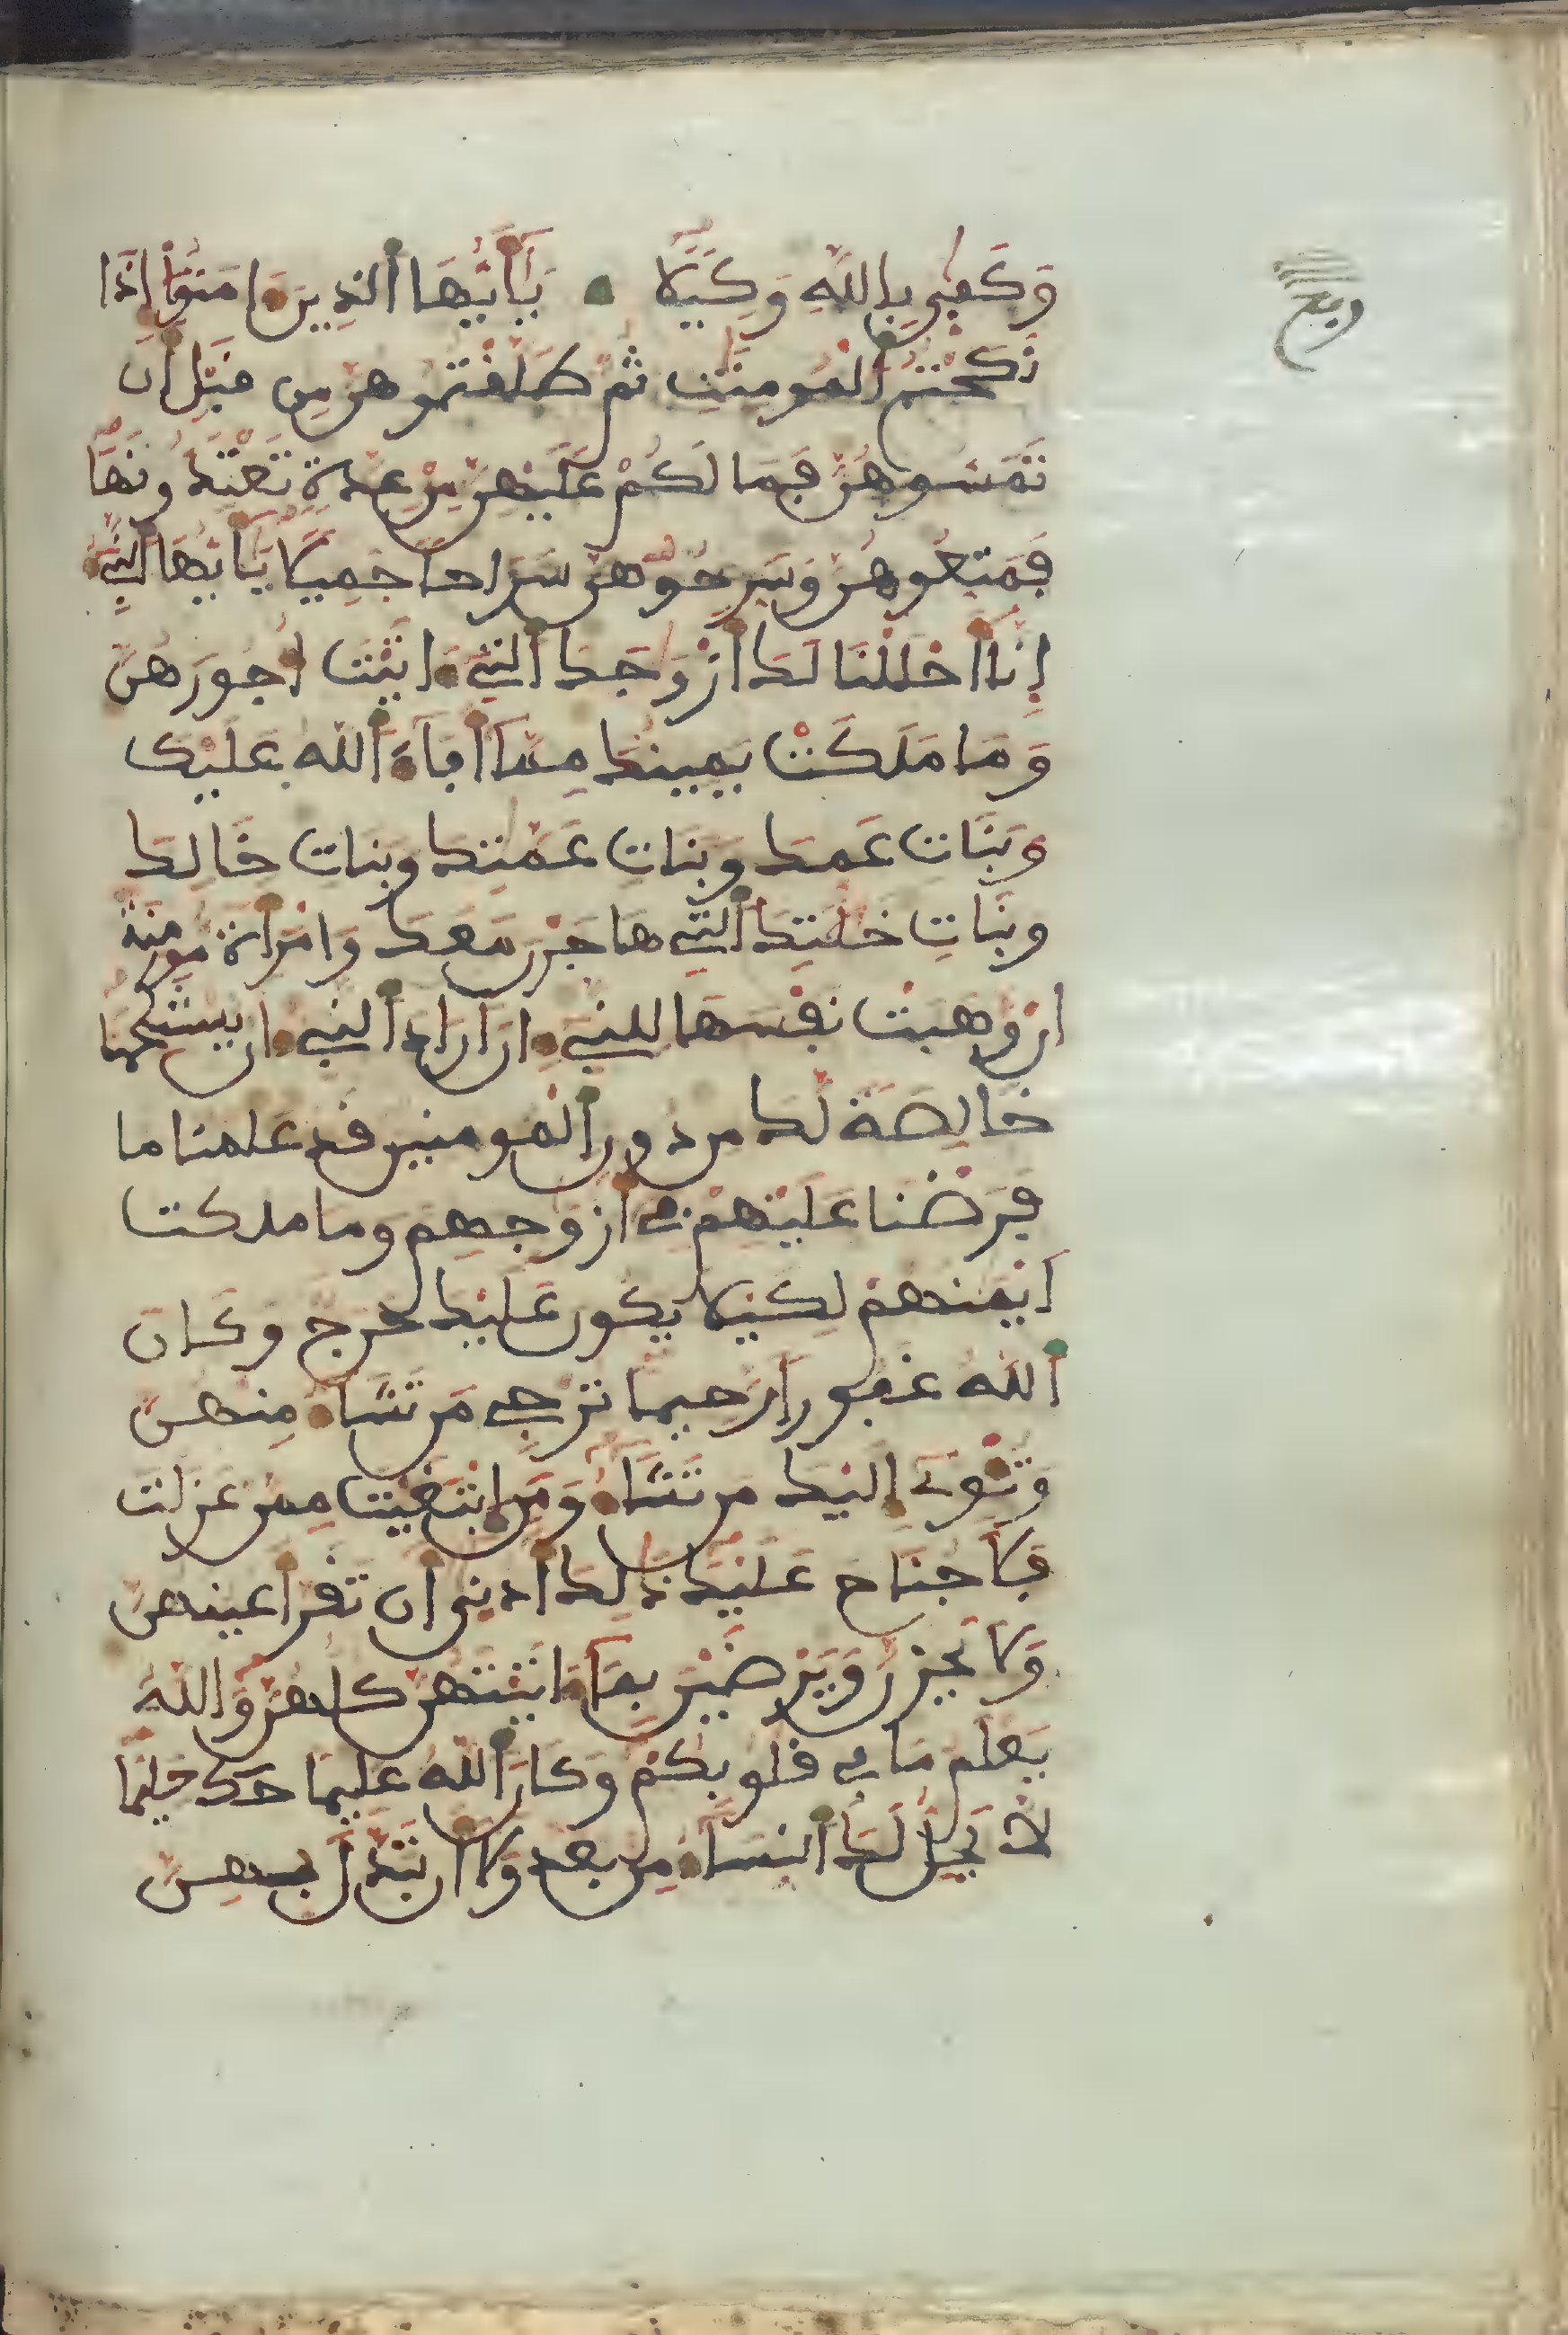 وَكَفٜى بِاللَّهِ وَكِيلًا يَٰٓأَيُّهَا اَ۬لذِينَ ءَامَنُوٓاْ إِذَا
نَكَحْتُمُ اُ۬لْمُومِنَٰتِ ثُمَّ طَلَّفْتُمُوهُنَّ مِن قَبْلِ أَن
تَمَسُّوهُنَّ فَمَا لَكُمْ عَلَيْهِنَّ مِنْ عِدَّةٖ تَعْتَدُّونَهَا
فَمَتِّعُوهُنَّ وَسَرِّحُوهُنَّ سَرَاحاً جَمِيلًا يَٰٓأَيُّهَا اَ۬لنَّبِےٓءُ
إِنَّآ أَحْلَلْنَا لَكَ أَزْوَٰجَكَ اَ۬لٰتِےٓ ءَاتَيْتَ أُجُورَهُنَّ
وَمَا مَلَكَتْ يَمِينُكَ مِمَّآ أَفَآءَ اَ۬للَّهُ عَلَيْكَ
وَبَنَاتِ عَمِّكَ وَبَنَاتِ عَمَّٰتِكَ وَبَنَاتِ خَالِكَ
وَبَنَاتِ خَٰلَٰتِكَ اَ۬لٰتِے هَاجَرْنَ مَعَكَ وَامْرَأَةٗ مُّومِنَةً
اِنْ وَهَبَتْ نَفْسَهَا لِلنَّبِےٓءِ انَ اَرَادَ اَ۬لنَّبِےٓءُ انْ يَّسْتَنكِحَهَا
خَالِصَةٗ لَّكَ مِن دُونِ اِ۬لْمُومِنِينَ قَدْ عَلِمْنَا مَا
فَرَضْنَا عَلَيْهِمْ فِےٓ أَزْوَٰجِهِمْ وَمَا مَلَكَتَ
اَيْمَٰنُهُمْ لِكَيْلَا يَكُونَ عَلَيْكَ حَرَجٞ وَكَانَ
اَ۬للَّهُ غَفُوراٗ رَّحِيماٗ تُرْجِے مَن تَشَآءُ مِنْهُنَّ
وَتُـْٔوِےٓ إِلَيْكَ مَن تَشَآءُ وَمَنِ اِ۪بْتَغَيْتَ مِمَّنْ عَزَلْتَ
فَلَا جُنَاحَ عَلَيْكَ ذَٰلِكَ أَدْنٜىٓ أَن تَقَرَّ أَعْيُنُهُنَّ
وَلَا يَحْزَنَّ وَيَرْضَيْنَ بِمَآ ءَاتَيْتَهُنَّ كُلُّهُنَّ وَاللَّهُ
يَعْلَمُ مَا فِے قُلُوبِكُمْ وَكَانَ اَ۬للَّهُ عَلِيماً حَلِيماٗ
لَّا يَحِلُّ لَكَ اَ۬لنِّسَآءُ مِنۢ بَعْدُ وَلَآ أَن تَبَدَّلَ بِهِنَّ